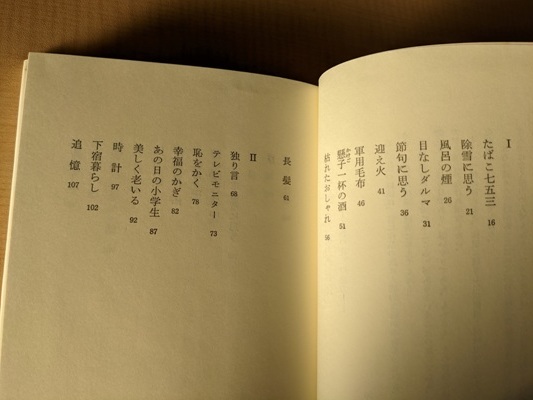 I
たばこ七五三 16
除雪に思う 21
風呂の煙 26
目なしダルマ 31
節句に思う 36
迎え火 41
軍用毛布 46
懸子一杯の酒 51
枯れたおしゃれ 56
長髪 61
II
独り言 68
テレビモニター 73
恥をかく 78
幸福のかぎ 82
あの日の小学生 87
美しく老いる 92
時計 97
下宿暮らし 102
追憶 107